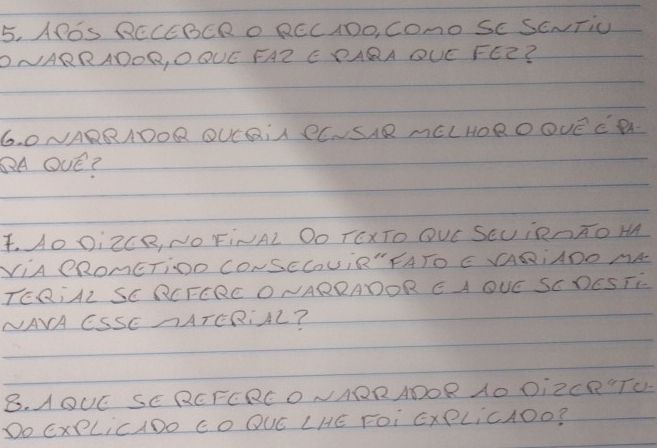 5. APÓS RECEBER O RECADO, COMO SE SENTIU
O NARRADOR, O QUE FAZ E PARA QUE FEZ?
6. O NARRADOR QUERIA PENSAR MELHOR O QUÊ E PA-
RA QUÊ?
7. AO DIZER, NO FINAL DO TEXTO QUE SEU IRMÃO HA
VIA PROMETIDO CONSEGUIR "FATO E VARIADO MA-
TERIAL SE REFERE O NARRADOR E A QUE SE DESTI-
NAVA ESSE MATERIAL?
8. A QUE SE REFERE O NARRADOR AO DIZER "TU-
DO EXPLICADO E O QUE LHE FOI EXPLICADO?